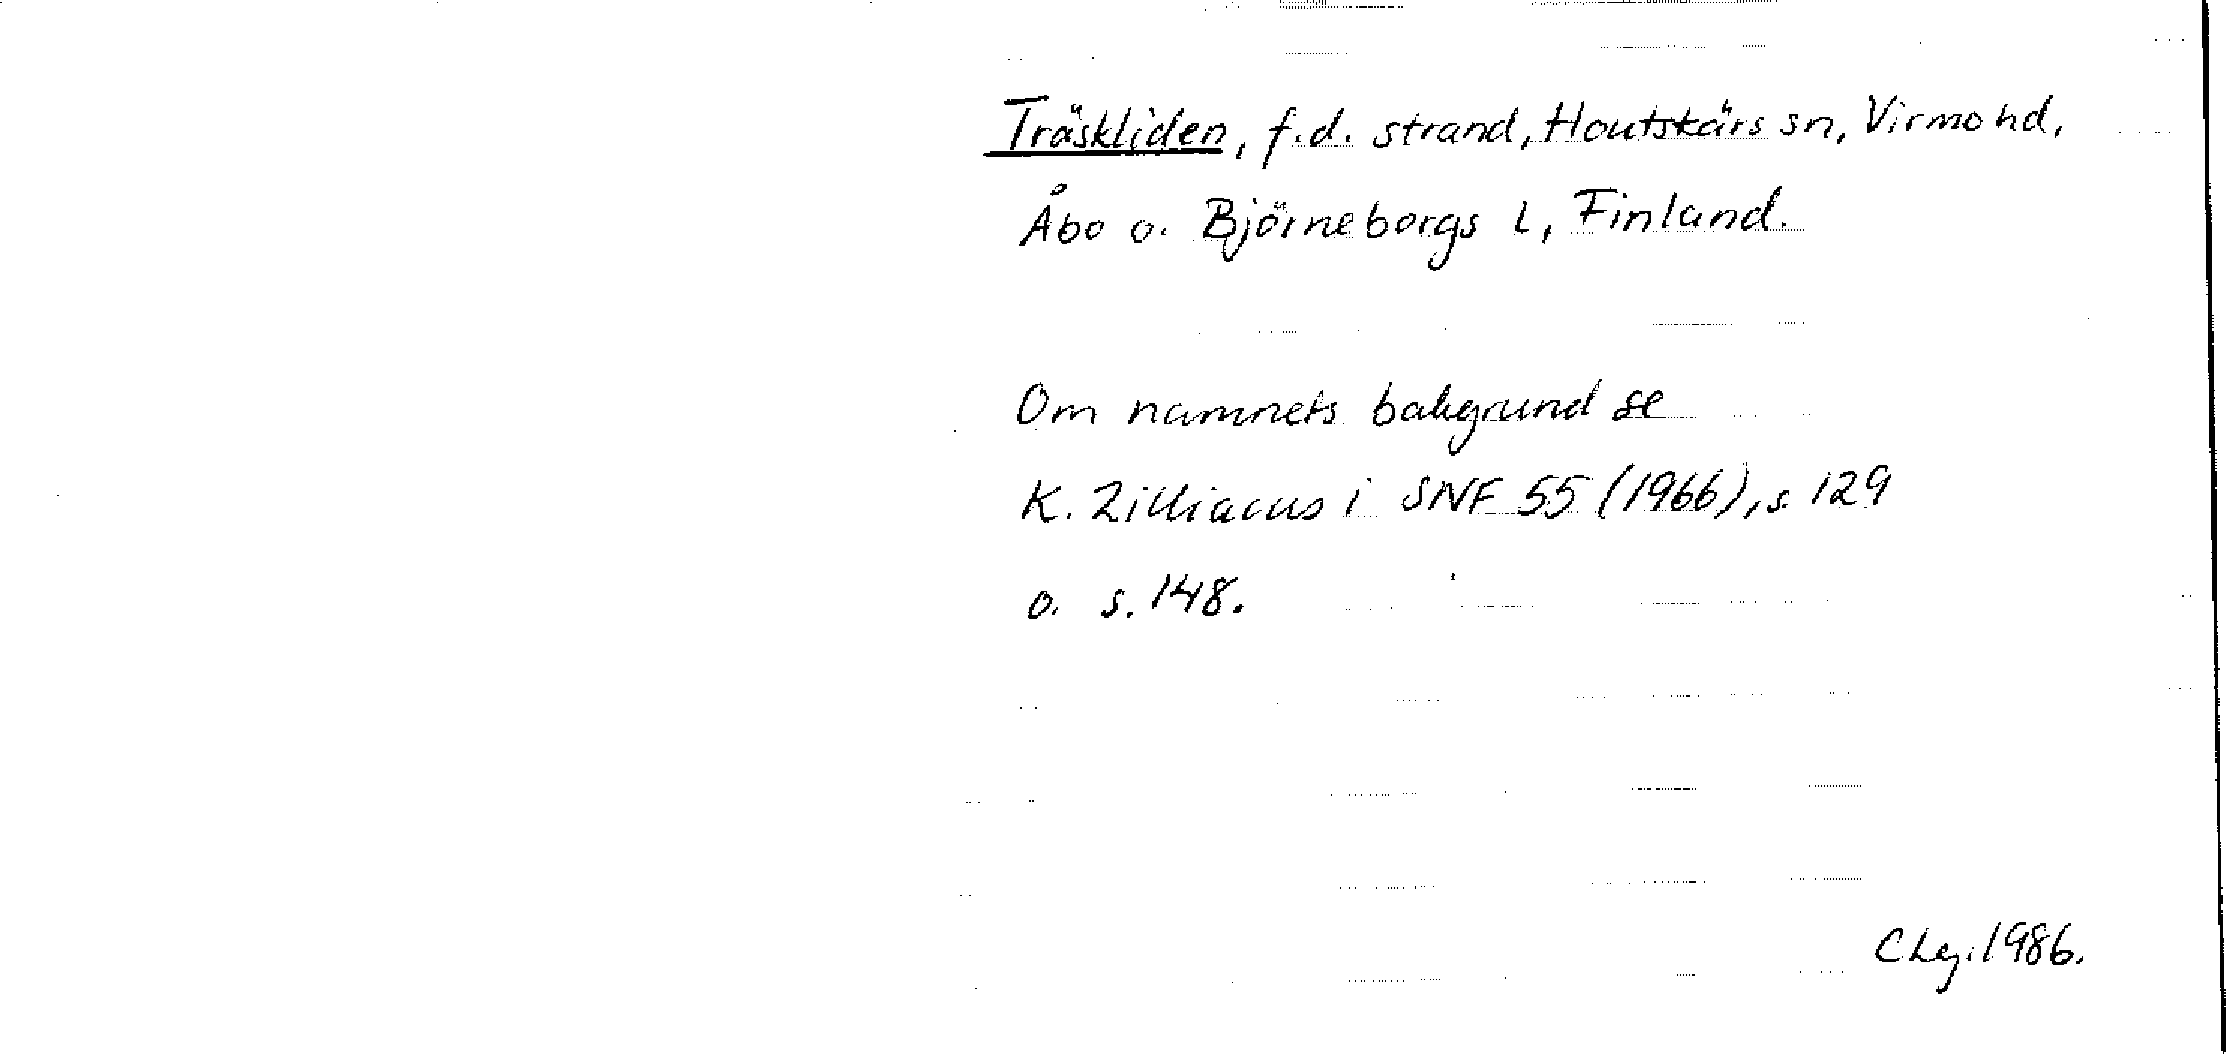 Träskliden, f.d. strand, Houtskärs sn, Virmo hd,
Åbo o. Björneborgs l, Finland.
Om namnets bakgrund se
K. Zilliacus i SNF 55 (1966), s. 129
o. s. 148.
CLg. 1986.